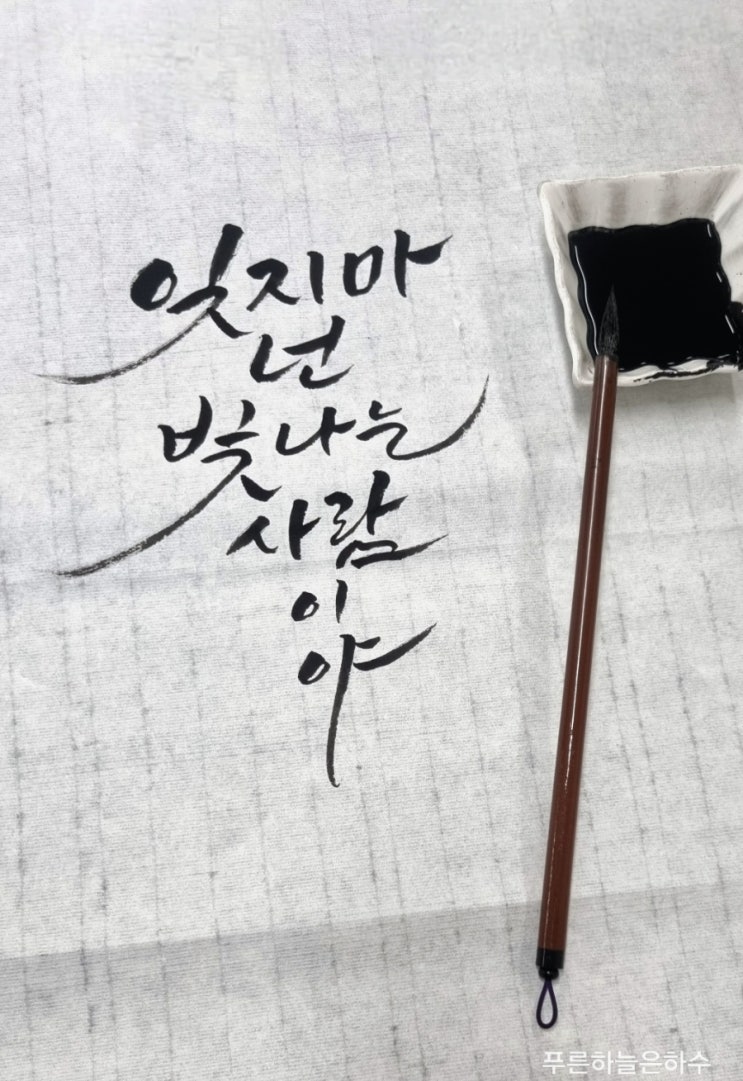 잊지마
넌
빛나는
사람
이
야
푸른하늘은하수